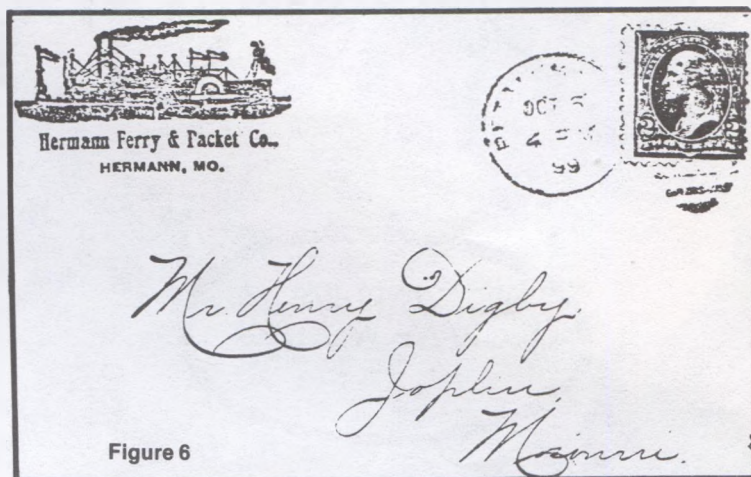 Hermann Ferry & Packet Co.,
HERMANN, MO.
OCT 5
4 PM
99
Mr. Henry Digby.
Joplin,
Missouri.
Figure 6